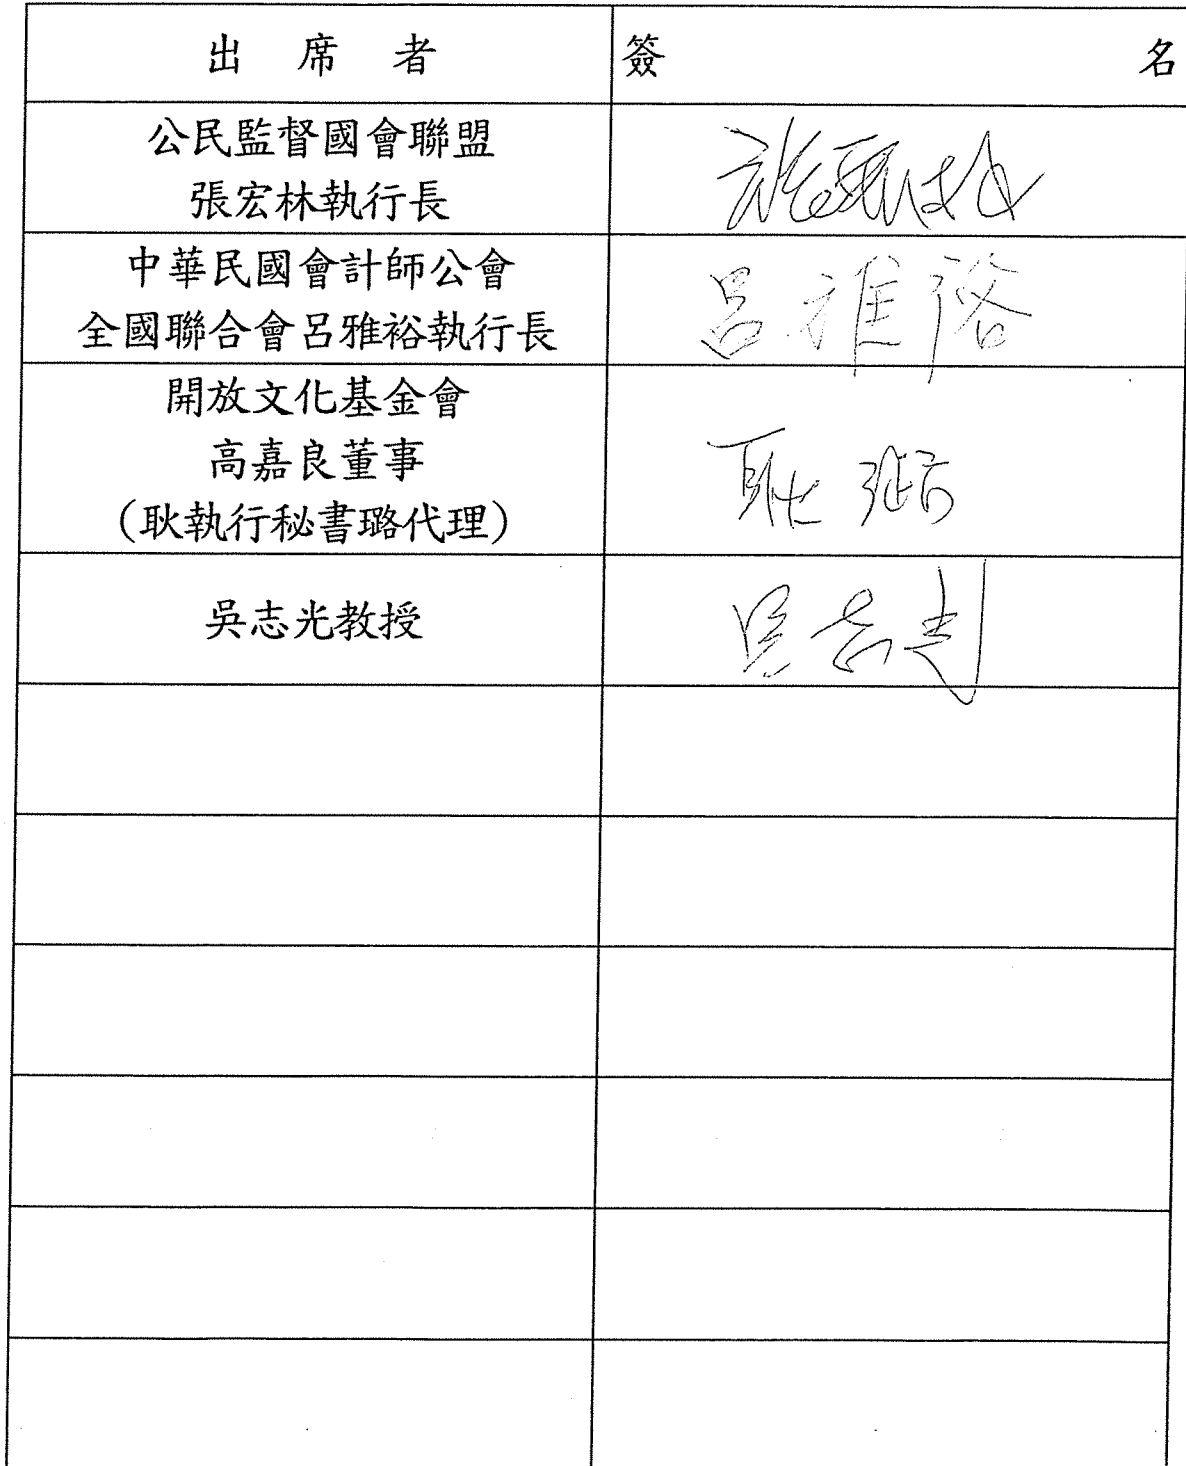 出 席 者
簽 名
公民監督國會聯盟
張宏林執行長
中華民國會計師公會
全國聯合會呂雅裕執行長
呂雅裕
開放文化基金會
高嘉良董事
(耿執行秘書璐代理)
耿璐
吳志光教授
吳志光